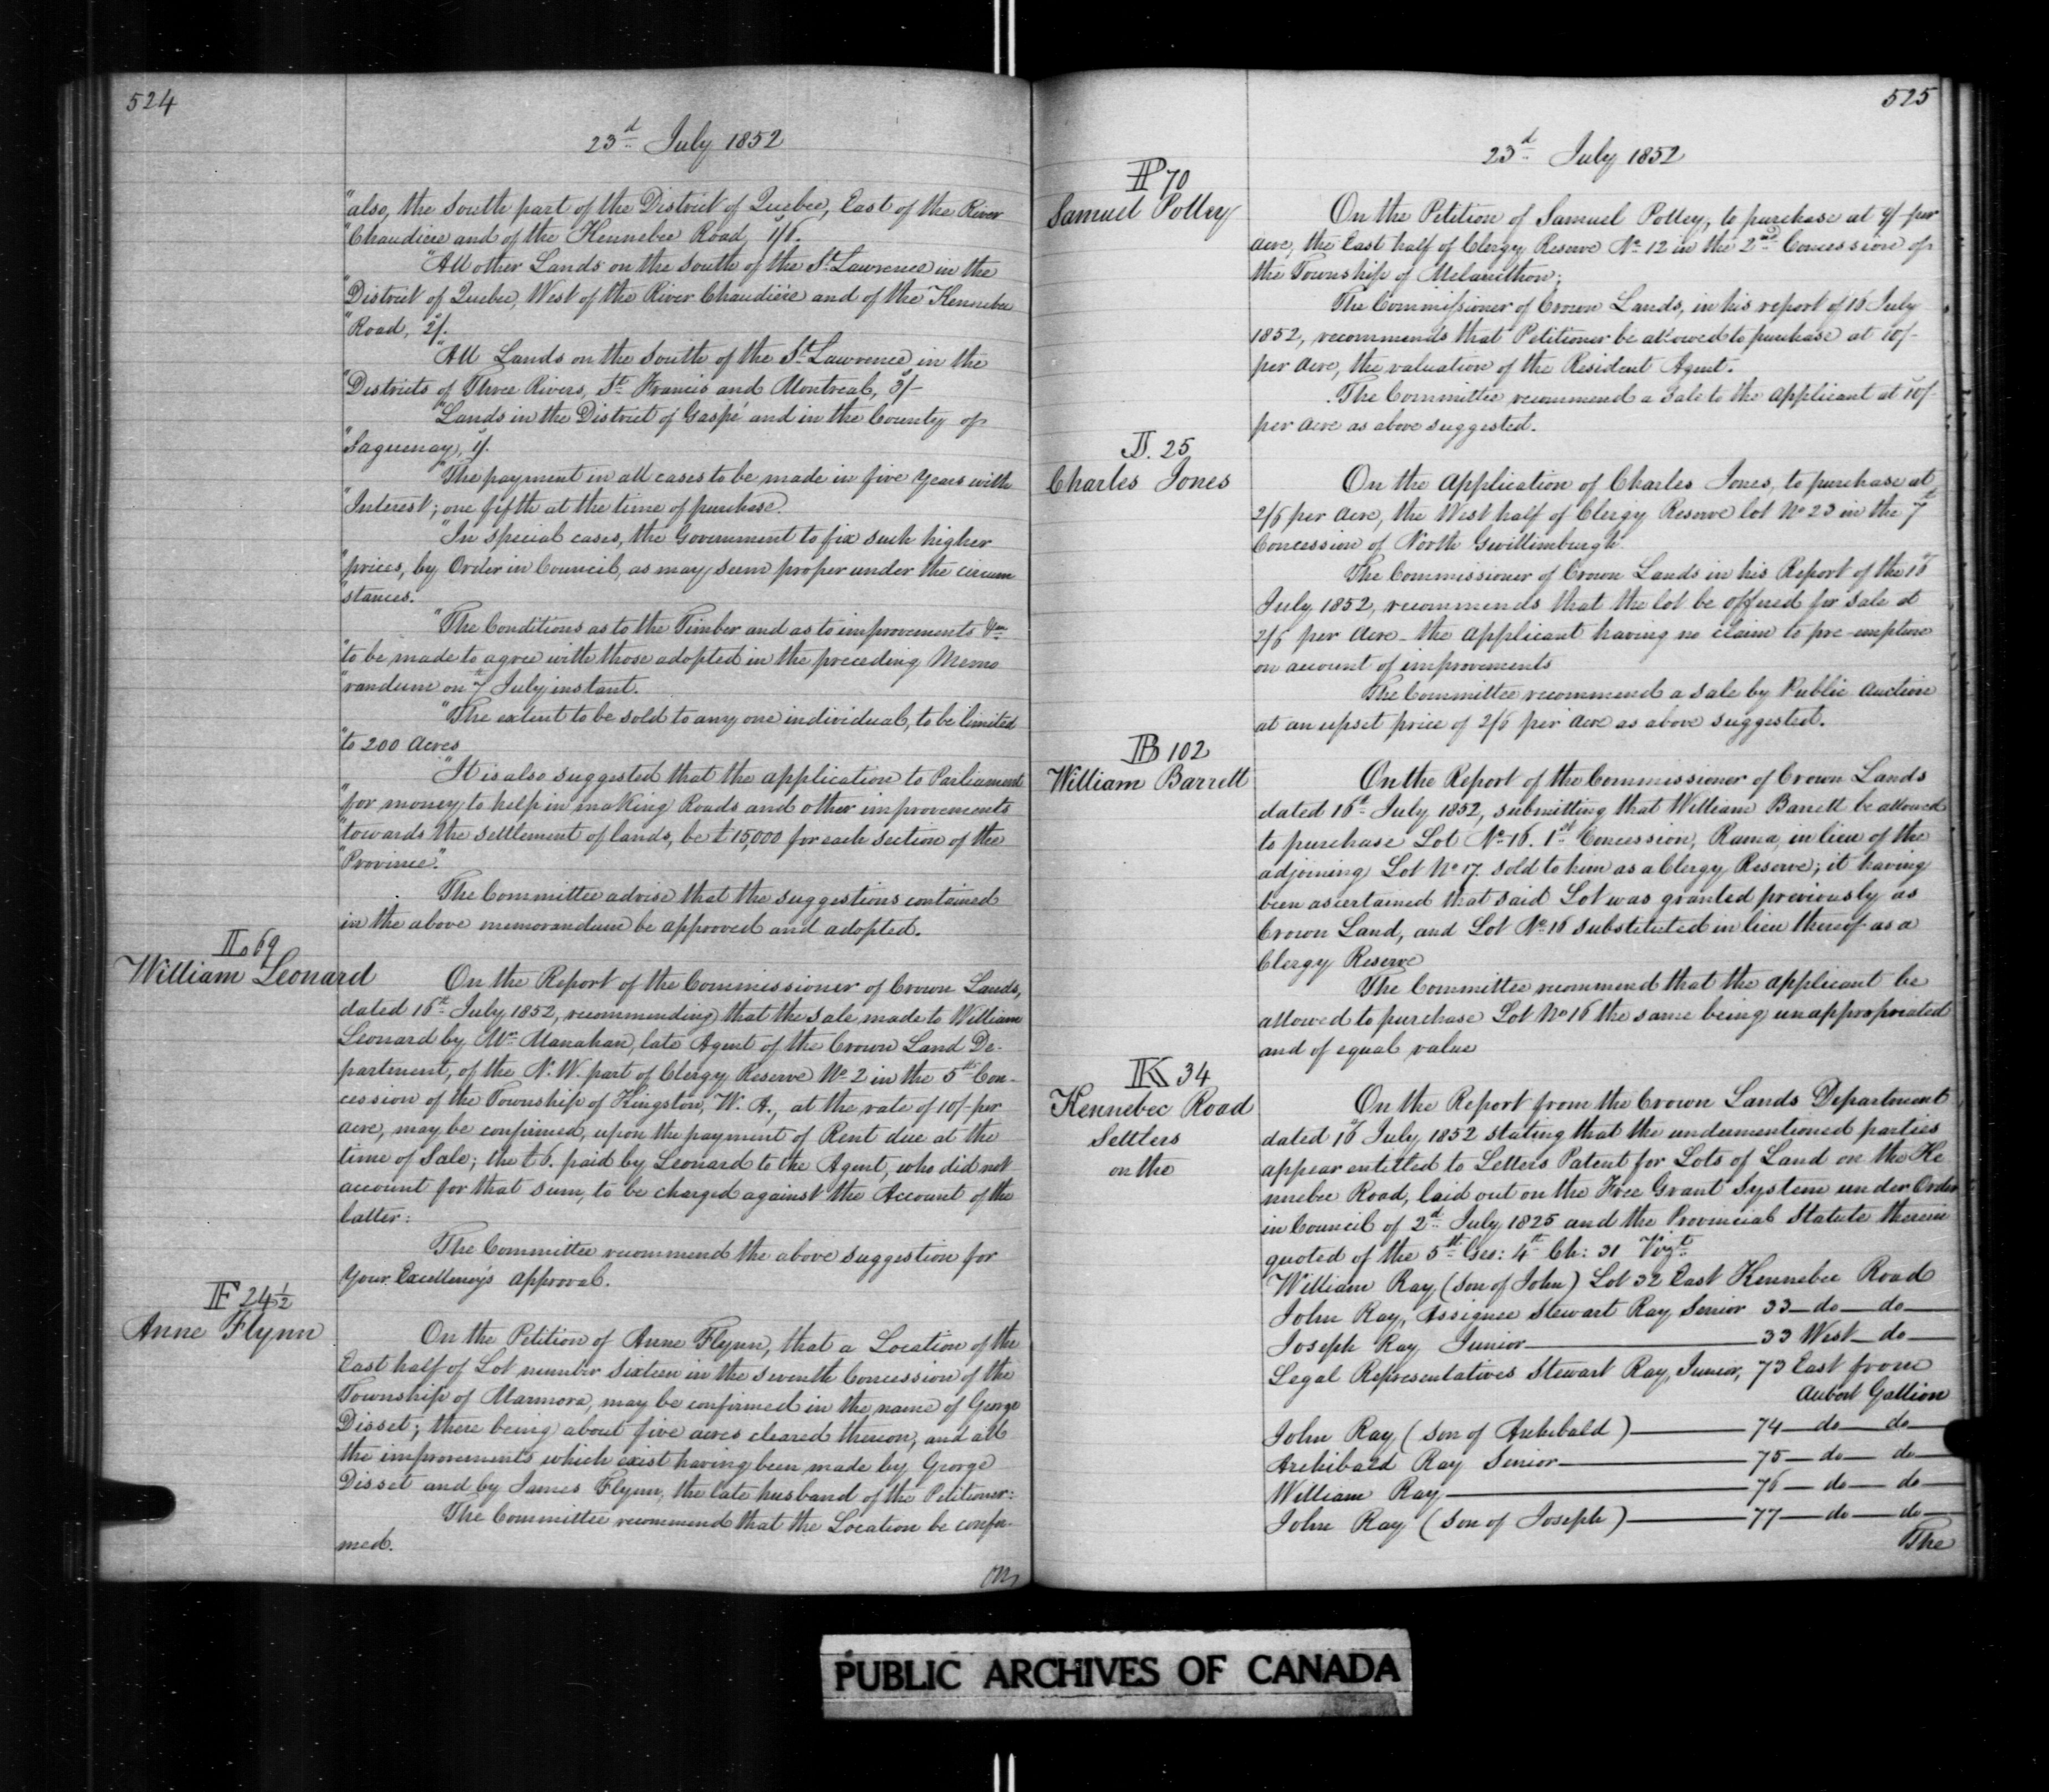 524
23d July 1852
"also, the South part of the District of Quebec, East of the River
"Chaudiere and of the Kennebec Road, 1/6.
"All other Lands on the South of the St Lawrence in the
"District of Quebec, West of the River Chaudière and of the Kennebec
"Road, 2/.
"All Lands on the South of the St Lawrence in the
"Districts of Three Rivers, St Francis and Montreal, 3/-
"Lands in the District of Gaspé and in the County of
"Saguenay, 1/.
"The payment in all cases to be made in five Years with
"Interest; one fifth at the time of purchase.
"In special cases, the Government to fix such higher
"prices, by Order in Council, as may seem proper under the circum
"stances.
"The Conditions as to the Timber and as to improvements &ca
"to be made to agree with those adopted in the preceding Memo
"randum on 7th July instant.
"The extent to be sold to any one individual, to be limited
"to 200 Acres
"It is also suggested that the application to Parliament
"for money to help in making Roads and other improvements
"towards the settlement of lands, be £15,000 for each section of the
"Province".
The Committee advise that the suggestions contained
in the above memorandum be approved and adopted.
L 69
William Leonard
On the Report of the Commissioner of Crown Lands,
dated 16th July 1852, recommending that the sale made to William
Leonard by Mr Manahan, late Agent of the Crown Land De-
partment, of the N. W. part of Clergy Reserve No 2 in the 5th Con-
cession of the Township of Kingston, W. A., at the rate of 10/- per
acre, may be confirmed, upon the payment of Rent due at the
time of Sale; the £6. paid by Leonard to the Agent, who did not
account for that sum, to be charged against the Account of the
latter:
The Committee recommend the above suggestion for
Your Excellency's approval.
F 24½
Anne Flynn
On the Petition of Anne Flynn, that a Location of the
East half of Lot number Sixteen in the seventh Concession of the
Township of Marmora, may be confirmed in the name of George
Disset; there being about five acres cleared thereon, and all
the improvements which exist having been made by George
Disset and by James Flynn, the late husband of the Petitioner:
The Committee recommend that the Location be confir-
med.
525
23d July 1852
P 70
Samuel Polley
On the Petition of Samuel Polley, to purchase at 9/- per
acre, the East half of Clergy Reserve No 12 in the 2nd Concession of
the Township of Melancthon;
The Commissioner of Crown Lands, in his report of 16 July
1852, recommends that Petitioner be allowed to purchase at 10/-
per acre, the valuation of the Resident Agent.
The Committee recommend a Sale to the applicant at 10/-
per acre as above suggested.
J. 25
Charles Jones
On the Application of Charles Jones, to purchase at
2/6 per Acre, the West half of Clergy Reserve lot No 23 in the 7th
Concession of North Gwillimburgh
The Commissioner of Crown Lands in his Report of the 16th
July 1852, recommends that the lot be offered for sale at
2/6 per Acre - the applicant having no claim to pre-emption
on account of improvements
The Committee recommend a sale by Public Auction
at an upset price of 2/6 per Acre as above suggested.
B 102
William Barrett
On the Report of the Commissioner of Crown Lands
dated 16th July 1852, submitting that William Barrett be allowed
to purchase Lot No 16. 1st Concession, Rama, in lieu of the
adjoining Lot No 17. sold to him as a Clergy Reserve; it having
been ascertained that said Lot was granted previously as
Crown Land, and Lot No 16 substituted in lieu thereof as a
Clergy Reserve
The Committee recommend that the applicant be
allowed to purchase Lot No 16 the same being unappropriated
and of equal value
K 34
Kennebec Road
Settlers
on the
On the Report from the Crown Lands Department
dated 16 July 1852 stating that the undermentioned parties
appear entitled to Letters Patent for Lots of Land on the Ke
nnebec Road, laid out on the Free Grant System under Order
in Council of 2d July 1825 and the Provincial Statute therein
quoted of the 5th Geo: 4th Ch: 31 Vizt
William Ray (son of John) Lot 32 East Kennebec Road
John Ray, Assignee Stewart Ray Senior 33 — do — do —
Joseph Ray Junior — 33 West — do —
Legal Representatives Stewart Ray, Junior, 73 East from
Aubert Gallion
John Ray (son of Archibald) — 74 — do — do —
Archibald Ray Senior — 75 — do — do
William Ray — 76 — do — do —
John Ray (son of Joseph) — 77 — do — do —
The
PUBLIC ARCHIVES OF CANADA